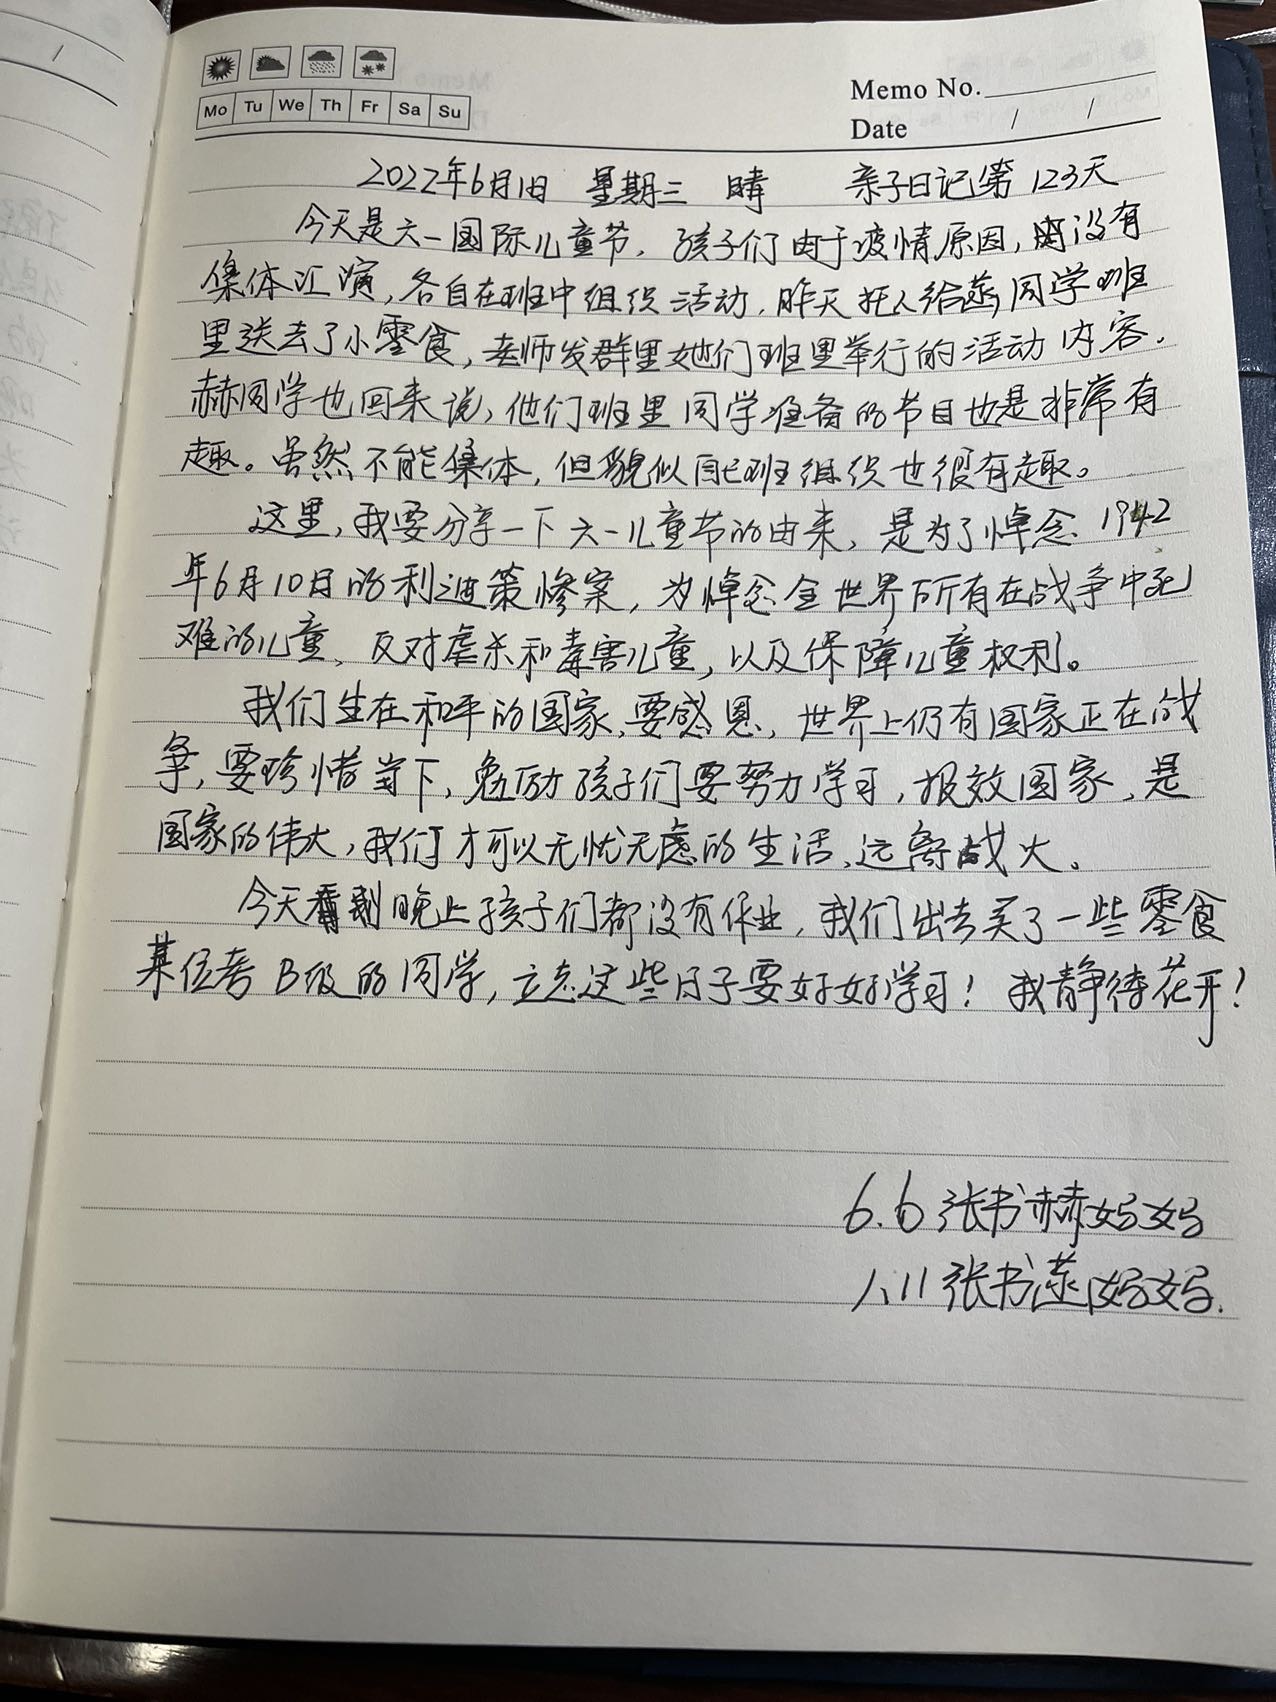 Mo Tu We Th Fr Sa Su
Memo No.
Date / /
2022年6月1日 星期三 晴 亲子日记第123天
今天是六一国际儿童节,孩子们由于疫情原因,没有
集体汇演,各自在班中组织活动,昨天托人给菡同学班
里送去了小零食,老师发群里她们班里举行的活动内容,
赫同学也回来说,他们班里同学准备的节目也是非常有
趣。虽然不能集体,但貌似自己班组织也很有趣。
这里,我要分享一下六一儿童节的由来,是为了悼念1942
年6月10日的利迪策惨案,为悼念全世界所有在战争中死
难的儿童、反对虐杀和毒害儿童,以及保障儿童权利。
我们生在和平的国家,要感恩,世界上仍有国家正在战
争,要珍惜当下,勉励孩子们要努力学习,报效国家,是
国家的伟大,我们才可以无忧无虑的生活,远离战火。
今天看到晚上孩子们都没有作业,我们出去买了一些零食
某位考B级的同学,立志这些日子要好好学习!我静待花开!
6.6张书赫妈妈
1.11张书菡妈妈.